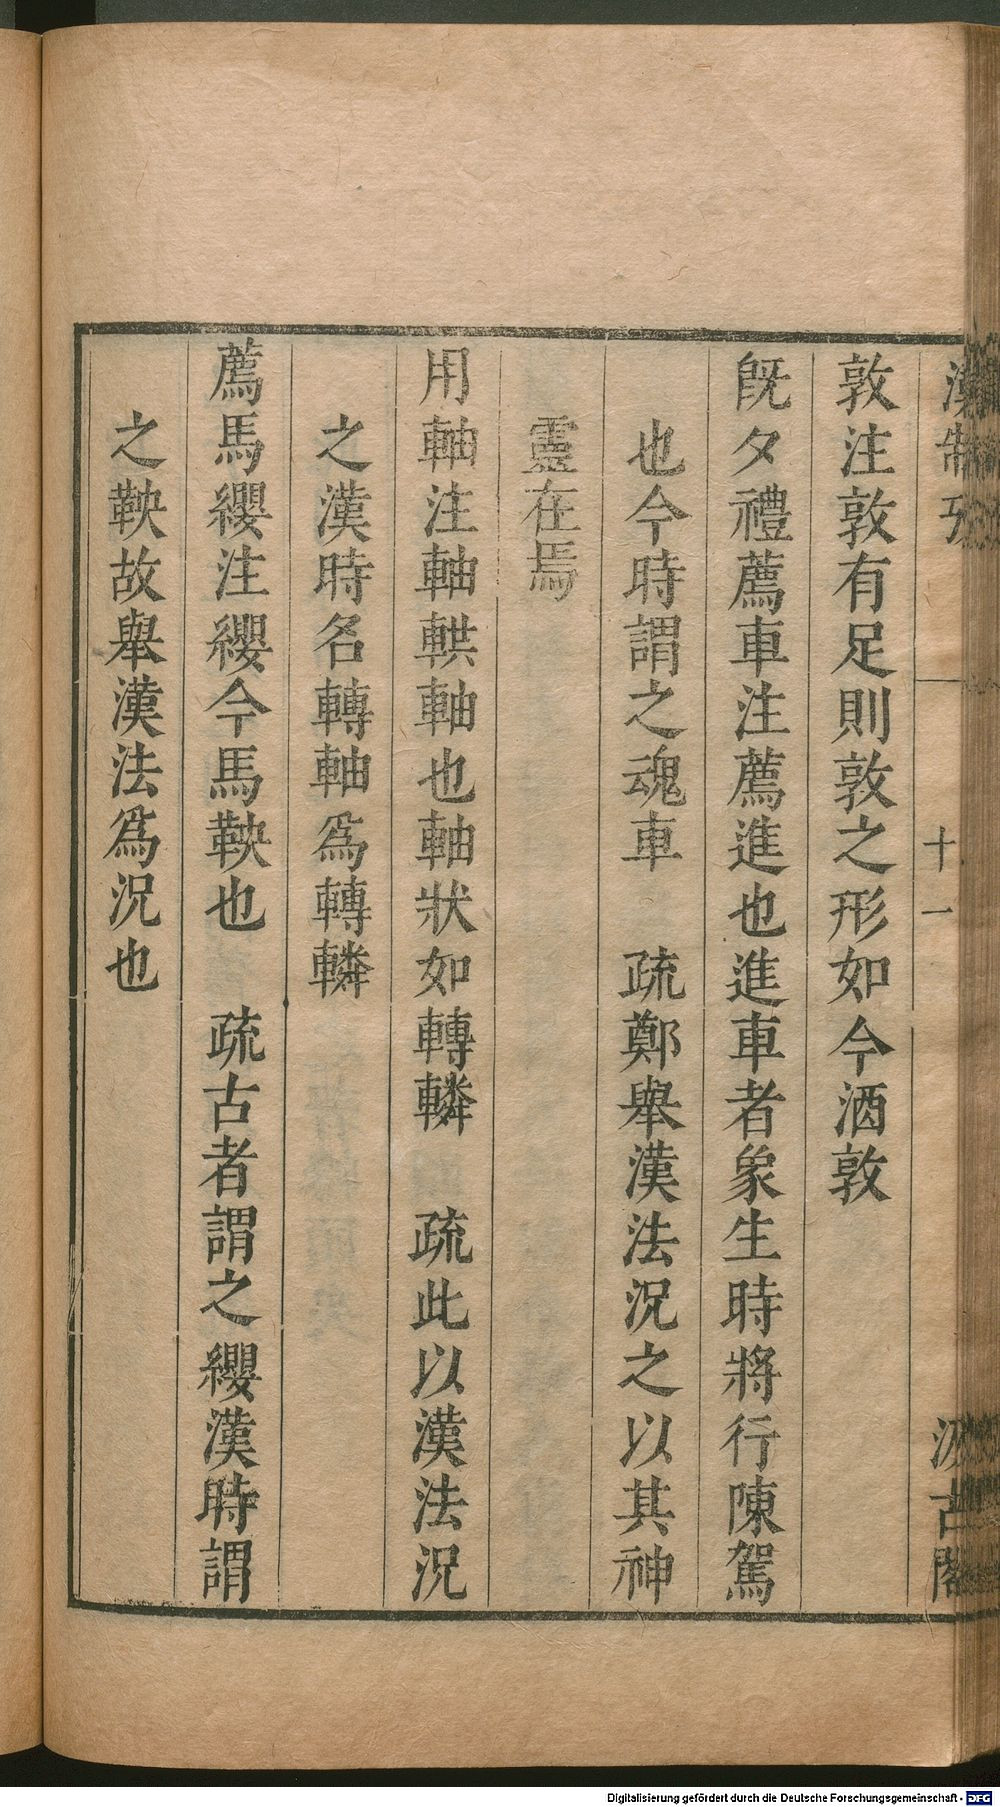 漢制攷 十一 汲古閣
敦注敦有足則敦之形如今酒敦
旣夕禮薦車注薦進也進車者象生時將行陳駕
也今時謂之魂車 疏鄭舉漢法況之以其神
靈在焉
用軸注軸輁軸也軸狀如轉轔 疏此以漢法況
之漢時名轉軸爲轉轔
薦馬纓注纓今馬鞅也 疏古者謂之纓漢時謂
之鞅故舉漢法爲況也
Digitalisierung gefördert durch die Deutsche Forschungsgemeinschaft - DFG